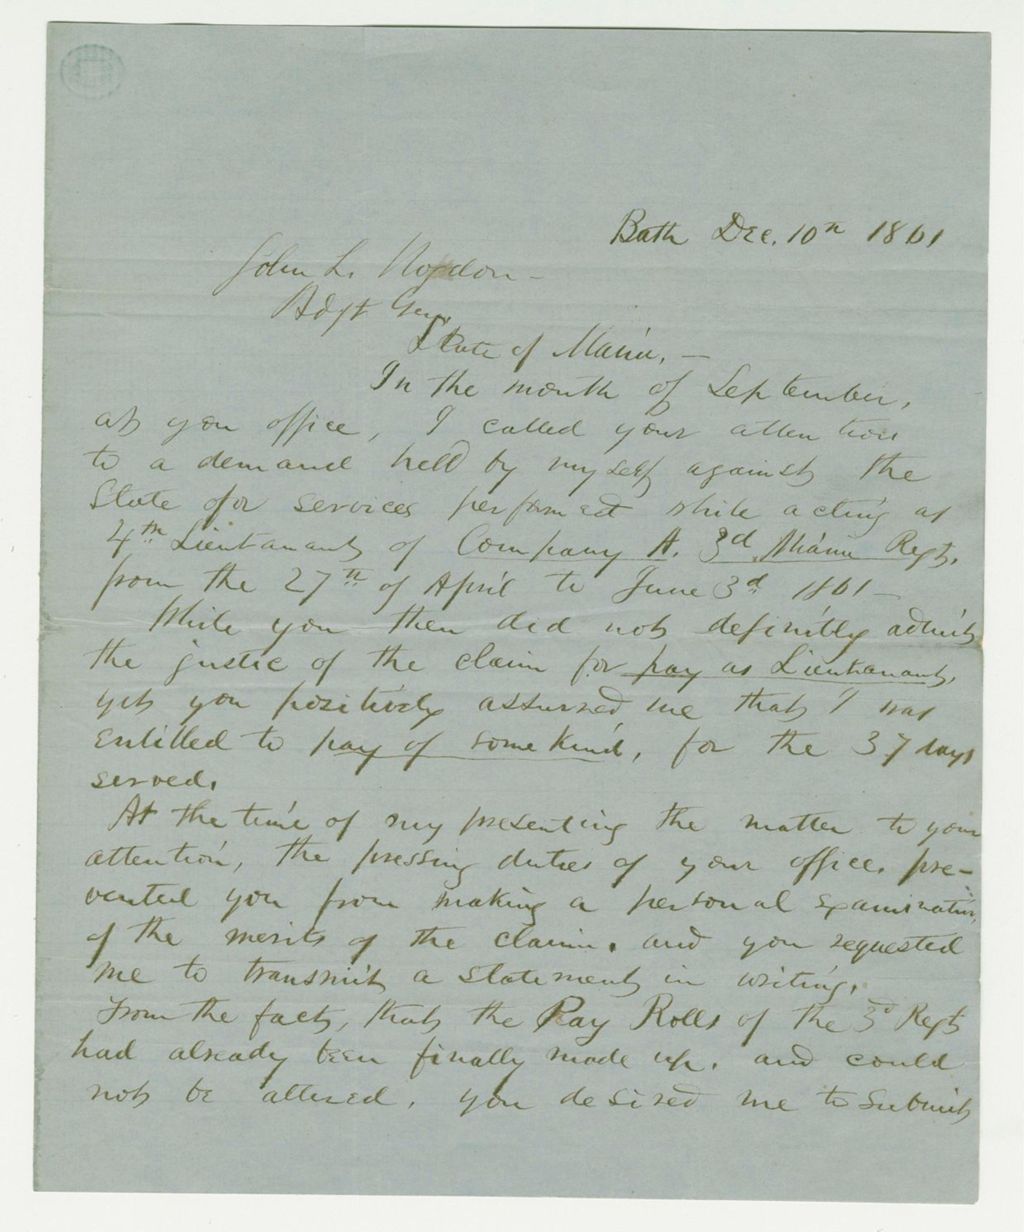 Bath Dec. 10th 1861
John L. Hogdon -
Adjt Gen.
State of Maine, -
In the month of September,
at you office, I called your attention
to a demand held by myself against the
State for services performed while acting as
4th Lieutanant of Company A. 3d Maine Regt.
from the 27th of April to June 3d 1861 -
While you then did not definitly admit
the justic of the claim for pay as Lieutanant,
yet you positively assurred me that I was
entitled to pay of some kind, for the 37 days
served.
At the time of my presenting the matter to your
attention, the pressing duties of your office, pre-
vented you from making a personal examination,
of the merits of the claim, and you requested
me to transmit a statement in writing.
From the fact, that the Pay Rolls of the 3d Regt
had already been finally made up, and could
not be altered, you desired me to submit